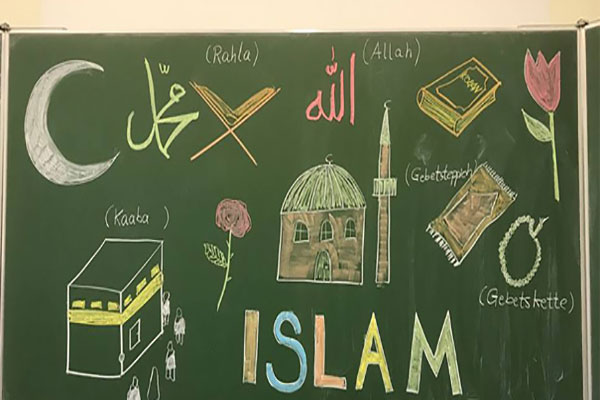 (Rahla)
(Allah)
محمد
الله
(Gebetsteppich)
(Kaaba)
(Gebetskette)
ISLAM